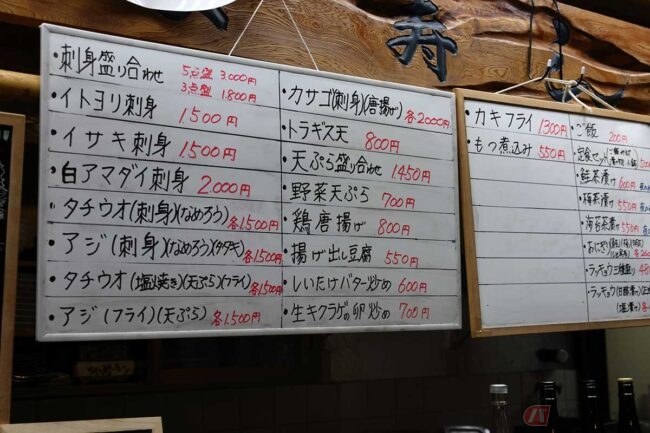 寿し
・刺身盛り合わせ 5点盛 3,000円
3点盛 1,800円
・イトヨリ刺身 1,500円
・イサキ刺身 1,500円
・白アマダイ刺身 2,000円
・タチウオ(刺身)(なめろう)各1,500円
・アジ(刺身)(なめろう)(タタキ)各1,500円
・タチウオ(塩焼き)(天ぷら)(フライ)各1,500円
・アジ(フライ)(天ぷら)各1,500円
・カサゴ(刺身)(唐揚げ)各2000円
・トラギス天 800円
・天ぷら盛り合わせ 1,450円
・野菜天ぷら 700円
・鶏唐揚げ 800円
・揚げ出し豆腐 550円
・しいたけバター炒め 600円
・生キクラゲの卵炒め 700円
・カキフライ 1300円
・もつ煮込み 550円
・ご飯 200円
・定食セット
・鮭茶漬け 600円
・梅茶漬け 550円
・海苔茶漬け 550円
・おにぎり
・ラッキョウ三種盛り
・ラッキョウ(甘酢漬け)
(塩漬け)